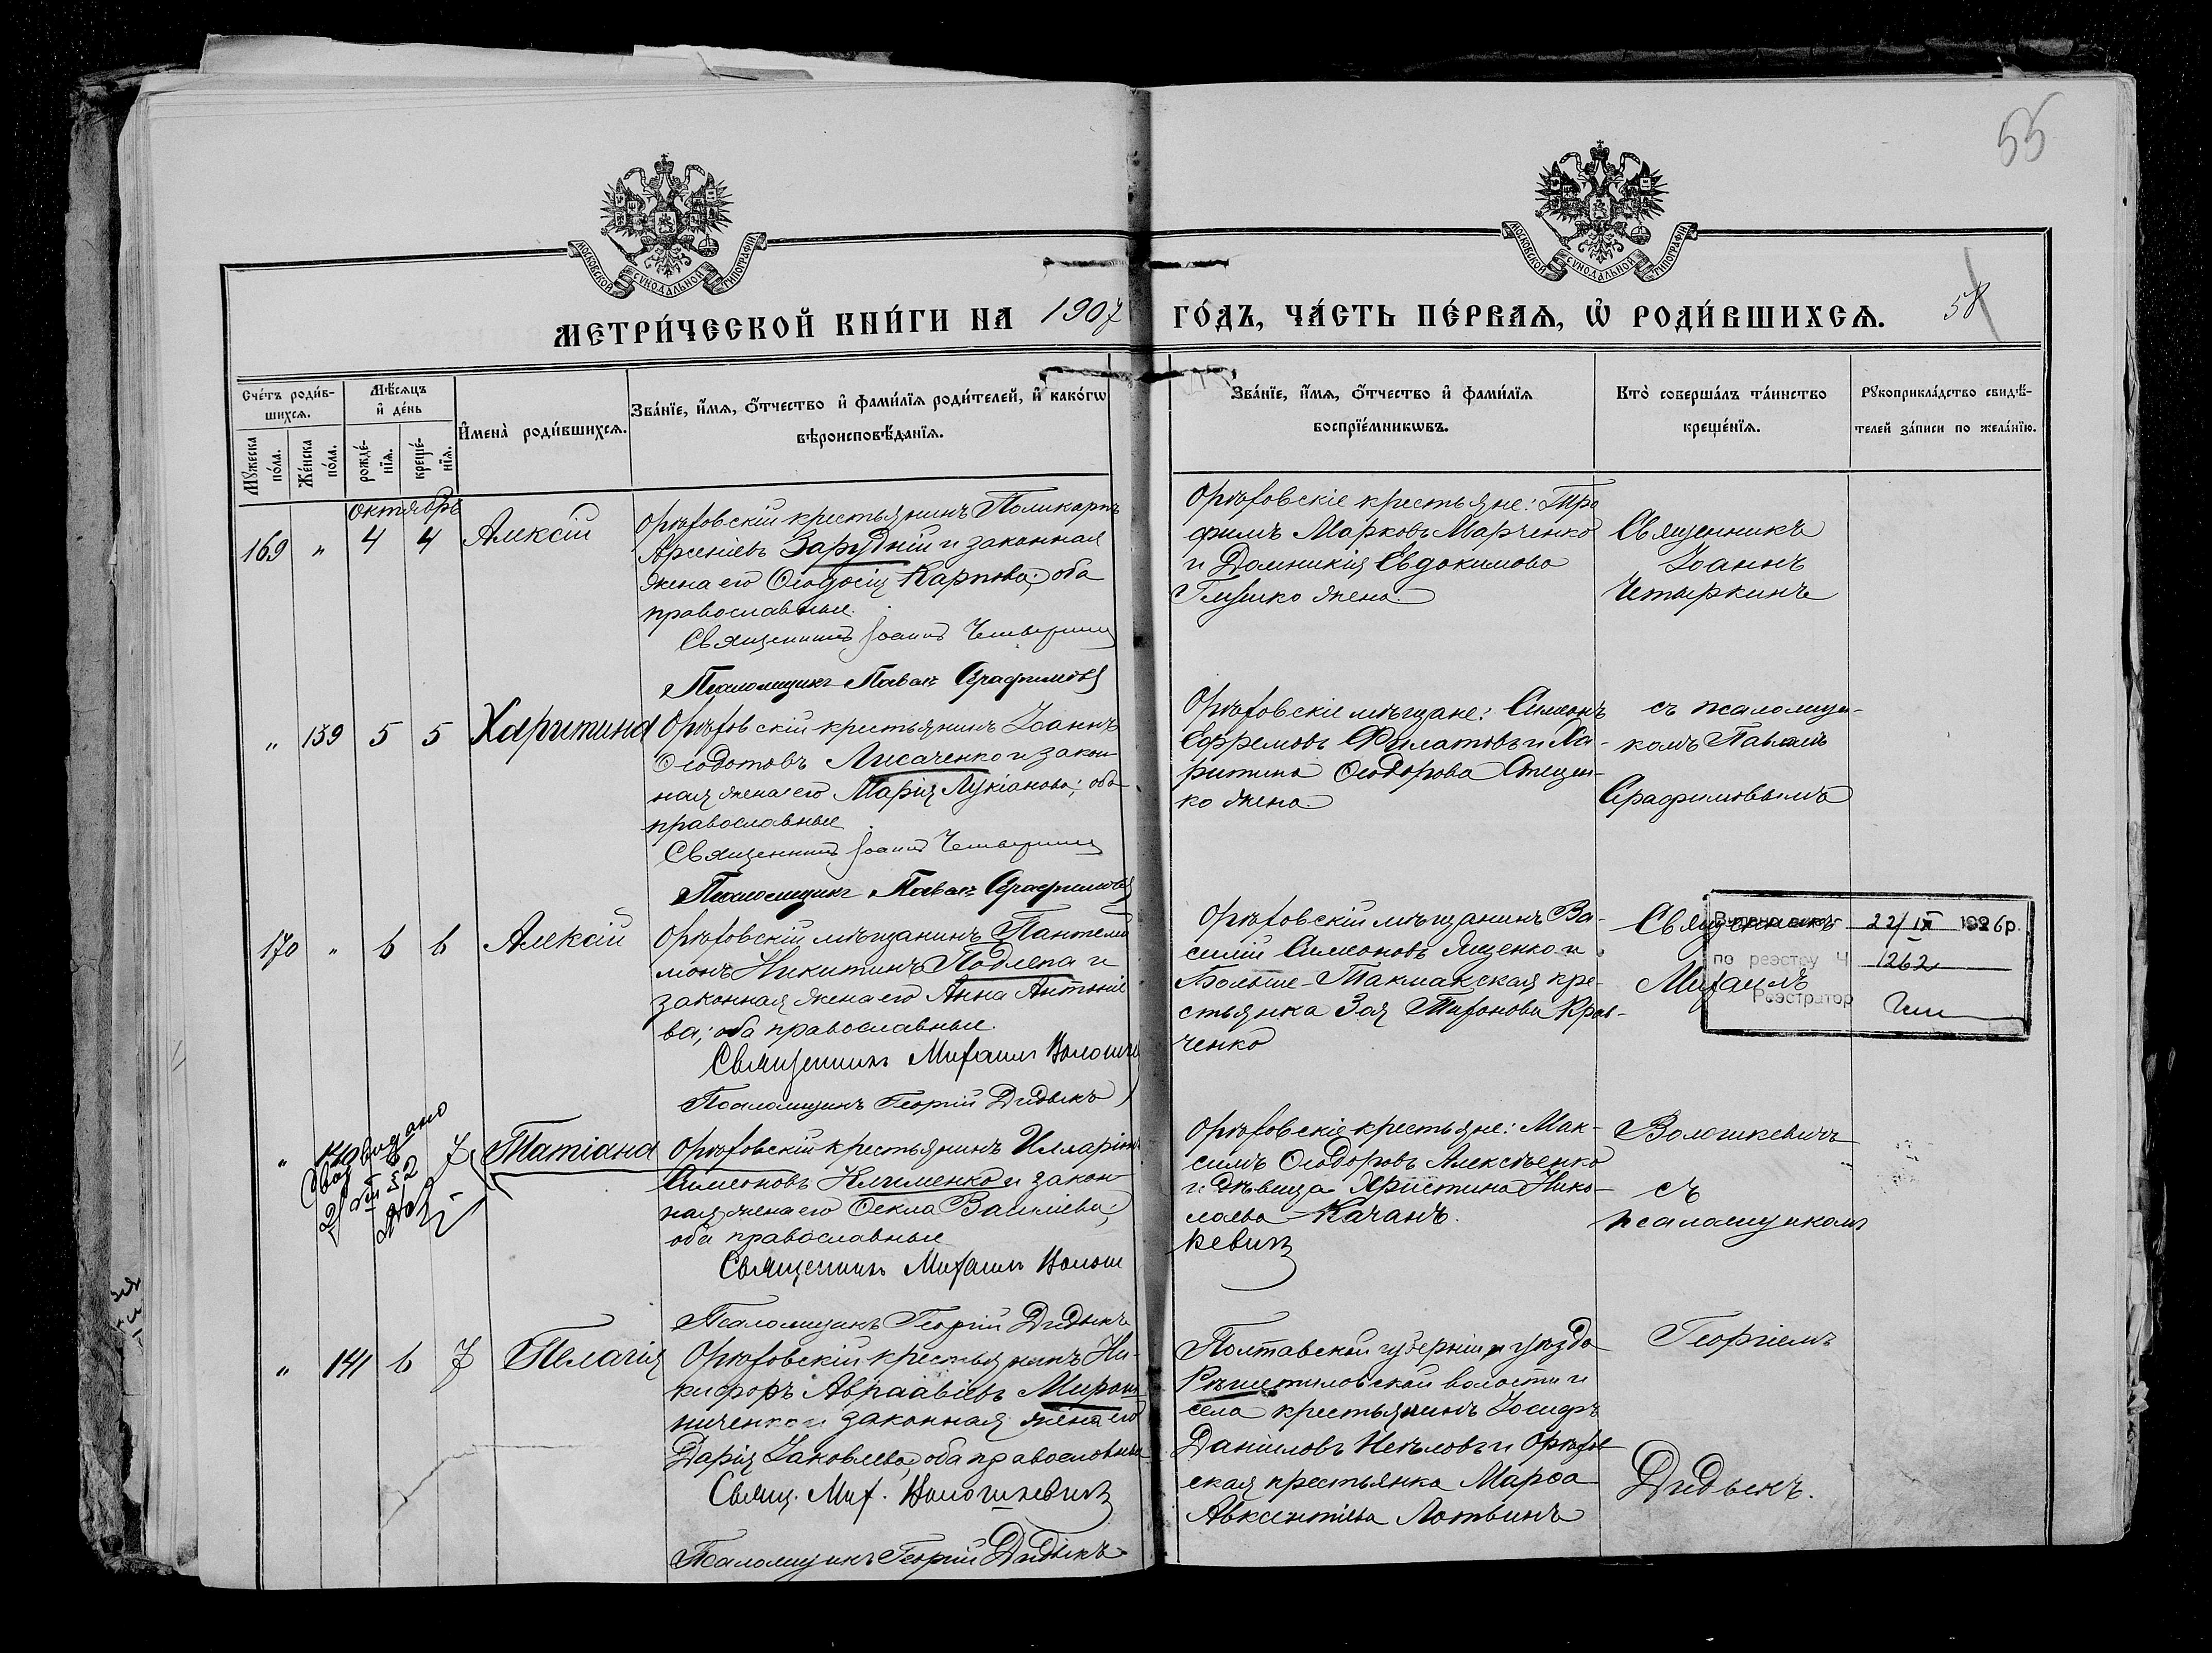 55
МОСКОВСКОЙ СѴНОДАЛЬНОЙ ТИПОГРАФІИ
МОСКОВСКОЙ СѴНОДАЛЬНОЙ ТИПОГРАФІИ
МЕТРИ́ЧЕСКОЙ КНИ́ГИ НА 1907 ГО́ДЪ, ЧА́СТЬ ПЕ́РВАѦ, Ѽ РОДИ́ВШИХСѦ. 58
Сче́тъ роди́в-
шихсѧ.
Мꙋ́жеска по́ла.
Же́нска по́ла.
Мѣ́сѧцъ
и҆ де́нь
рожде́-
нїѧ.
креще́-
нїѧ.
И҆мена̀ роди́вшихсѧ.
Зва́нїе, и҆́мѧ, ѻ҆́тчество и҆ фами́лїѧ роди́телей, и҆ како́гѡ
вѣроисповѣ́данїѧ.
Зва́нїе, и҆́мѧ, ѻ҆́тчество и҆ фами́лїѧ
воспрїе́мникѡвъ.
Кто̀ соверша́лъ та́инство
креще́нїѧ.
Рꙋкоприкла́дство свидѣ́-
телей за́писи по жела́нїю.
октябрь
169 " 4 4 Алексій
Орѣховскій крестьянинъ Поликарпъ
Арсеніевъ Зарудній и законная
жена его Ѳеодосія Карпова; оба
православные.
Священникъ Іоаннъ
Псаломщикъ Павелъ Серафимовъ
Орѣховскіе крестьяне: Тро
фимъ Марковъ Марченко
и Домникія Евдокимова
Глушко жена.
Священникъ
Іоаннъ
Четыркинъ
" 139 5 5 Харитина
Орѣховскій крестьянинъ Іоаннъ
Ѳеодотовъ Лисаченко и закон
ная жена его Марія Лукіанова; оба
православные.
Священникъ Іоаннъ
Псаломщикъ Павелъ Серафимовъ
Орѣховскіе мѣщане: Симеонъ
Ефремовъ Филатовъ и Ха-
ритина Ѳеодорова Стецен-
ко жена
съ псаломщи-
комъ Павломъ
Серафимовымъ
170 " 6 6 Алексій
Орѣховскій мѣщанинъ Пантелеи
монъ Никитинъ Подлепа и
законная жена его Анна Антоніе
ва; оба православные.
Священникъ Михаилъ
Псаломщикъ Георгій Дидыкъ
Орѣховскій мѣщанинъ Ва-
силій Симеоновъ Яценко и
Больше-Токмакская кре-
стьянка Зоя Тихонова Крав-
ченко
Священникъ
Михаилъ
22/IX 1926р.
по реэстру Ч 1262
Реэстратор
" 140 6 7 Татіана
Орѣховскій крестьянинъ Илларіонъ
Симеоновъ Клименко и закон
ная жена его Ѳекла Василіева;
оба православные
Священникъ Михаилъ Волош
кевичъ
Псаломщикъ Георгій Дидыкъ
Орѣховскіе крестьяне: Мак-
симъ Ѳеодоровъ Алексѣенко
и дѣвица Христина Нико-
лаева Качанъ.
Волошкевичъ
съ
псаломщикомъ
" 141 6 7 Пелагія
Орѣховскій крестьянинъ Ни-
кифоръ Авраавіевъ Мирош
ниченко и законная жена его
Дарія Іаковлева; оба православные
Свящ. Мих. Волошкевичъ
Псаломщикъ Георгій Дидыкъ
Полтавской губерніи и уѣзда
Рѣшетиловской волости и
села крестьянинъ Іосифъ
Даніиловъ и Орѣхов
ская крестьянка Марѳа
Авксентіева Литвинъ
Георгіемъ
Дидыкъ.